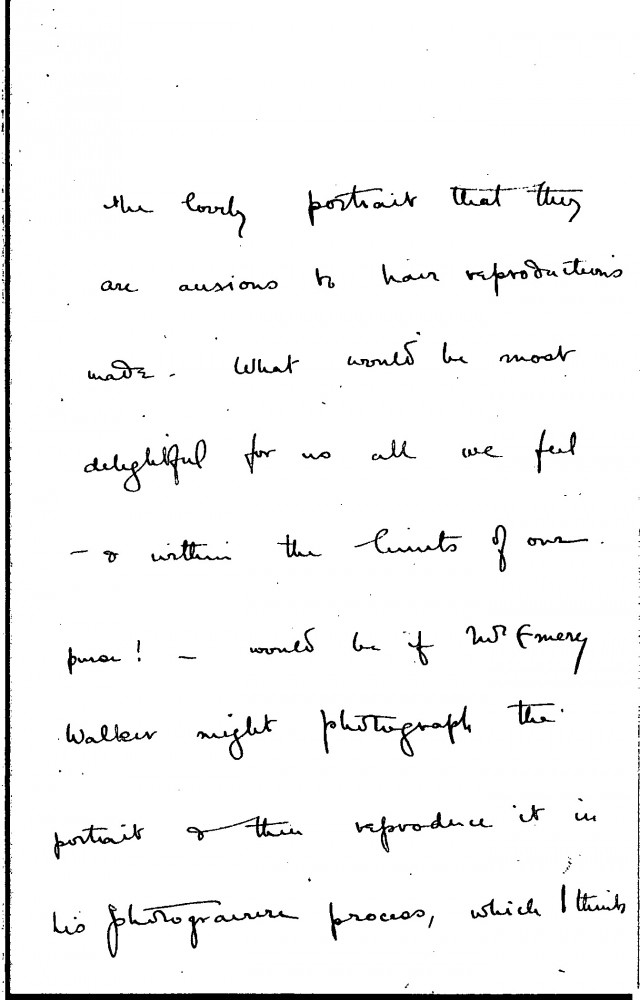 the lovely portrait that they
are anxious to have reproductions
made - What would be most
delightful for us all we feel
- & within the limits of our
purse! - would be if Mr Emery
Walker might photograph the
portrait & then reproduce it in
his photogravure process, which I think